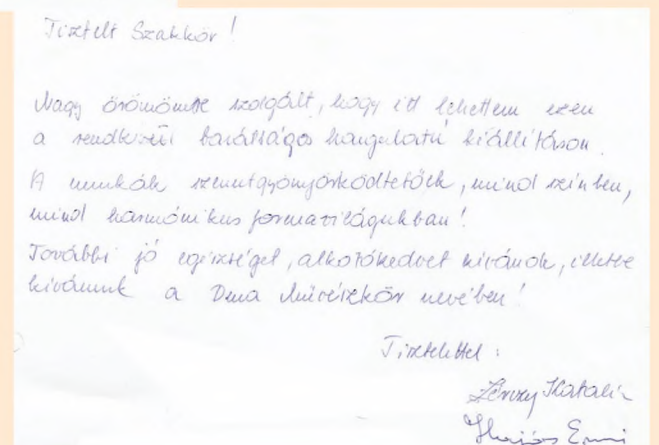 Tisztelt Szakkör!
Nagy örömömre szolgált, hogy itt lehettem ezen
a rendkívüli barátságos hangulatú kiállításon.
A munkák szemetgyönyörködtetőek, mind színben,
mind harmónikus formavilágukban!
További jó egészséget, alkotókedvet kívánok, illetve
kívánunk a Duna Művészkör nevében!
Tisztelettel:
Katalin
Hajós Emmi